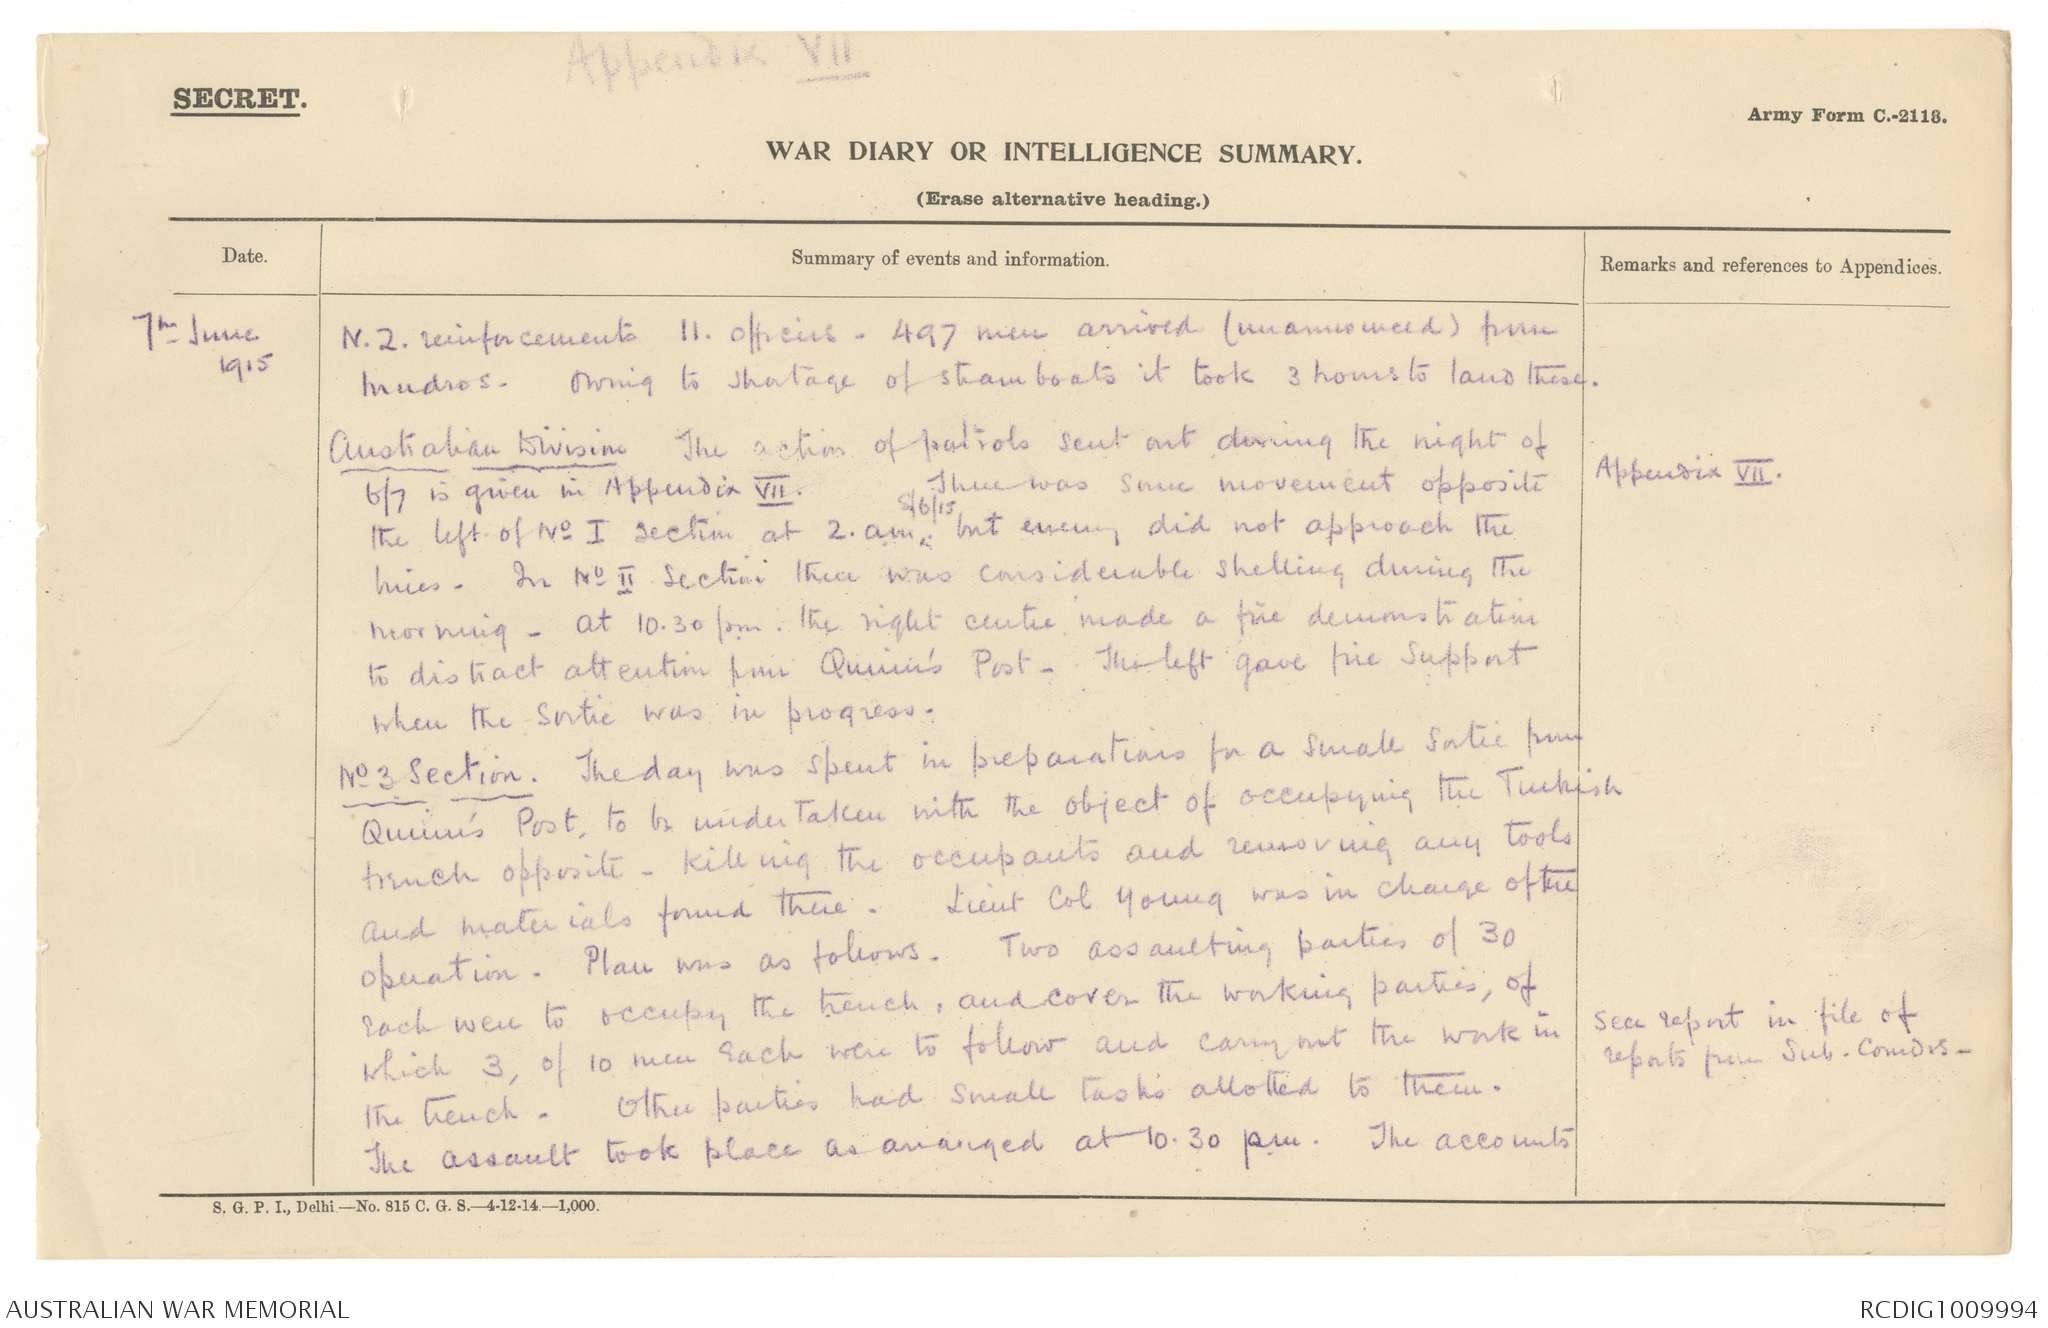 Appendix VII
SECRET.
Army Form C.-2118.
WAR DIARY OR INTELLIGENCE SUMMARY.
(Erase alternative heading.)
Date.
Summary of events and information.
Remarks and references to Appendices.
7th June
1915
N.Z. reinforcements 11. officers - 497 men arrived (unannounced) from
Mudros - Owing to shortage of steamboats it took 3 hours to land these.
Australian Division The action of patrols sent out during the night of
6/7 is given in Appendix VII. There was some movement opposite
Appendix VII.
8/6/15
the left of No I Section at 2. am, but enemy did not approach the
lines - In No II Section there was considerable shelling during the
morning - At 10.30 pm. the right centre made a fire demonstration
to distract attention from Quinn's Post - The left gave fire support
when the Sortie was in progress.
No 3 Section. The day was spent in preparations for a small sortie from
Quinn's Post, to be undertaken with the object of occupying the Turkish
trench opposite - killing the occupants and removing any tools
and materials found there. Lieut Col Young was in charge of the
operation - Plan was as follows. Two assaulting parties of 30
each were to occupy the trench, and cover the working parties, of
which 3, of 10 men each were to follow and carry out the work in
the trench - Other parties had small tasks allotted to them.
The assault took place as arranged at 10.30 pm. The accounts
See report in file of
reports from Sub-Comdrs -
S. G. P. I., Delhi—No. 815 C. G. S.—4-12-14—1,000.
AUSTRALIAN WAR MEMORIAL
RCDIG1009994